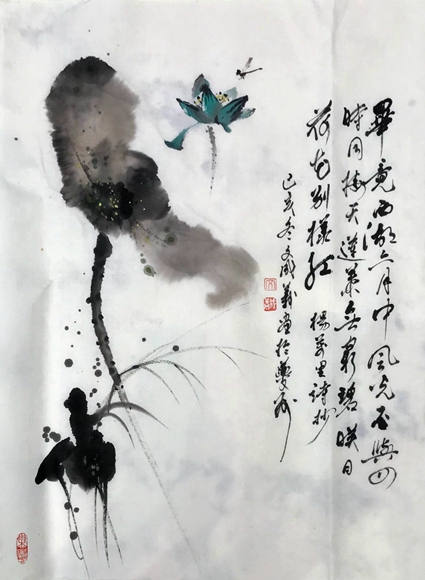 畢竟西湖六月中風光不與四
時同接天蓮葉無窮碧映日
荷花別樣紅 楊萬里詩抄
己亥冬文義畫於夔州